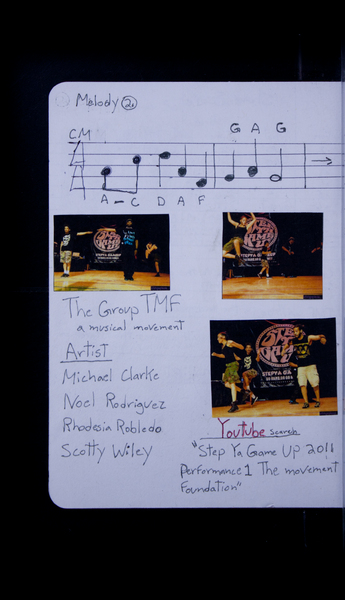 Melody 2.
CM
G A G
A - C D A F
STEP YA GAME UP
STEP YA GAME UP
The Group TMF
a musical movement
Artist
Michael Clarke
Noel Rodriguez
Rhodesia Robledo
Scotty Wiley
Youtube Search
"Step Ya Game Up 2011
Performance 1 The movement
Foundation"